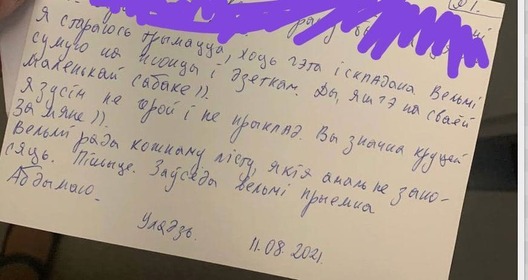 Я стараюсь трымацца, хоць гэта і складана. Вельмі
сумую па і дзеткам. Ды, яшчэ па сваёй
маленькай сабаке)).
Я зусім не герой і не прыклад. Вы значна круцей
за мяне)).
Вельмі рада кожнаму лісту, якія амаль не зано-
сяць. Пішыце. Заўсёды вельмі прыемна
Абдымаю.
11.08.2021